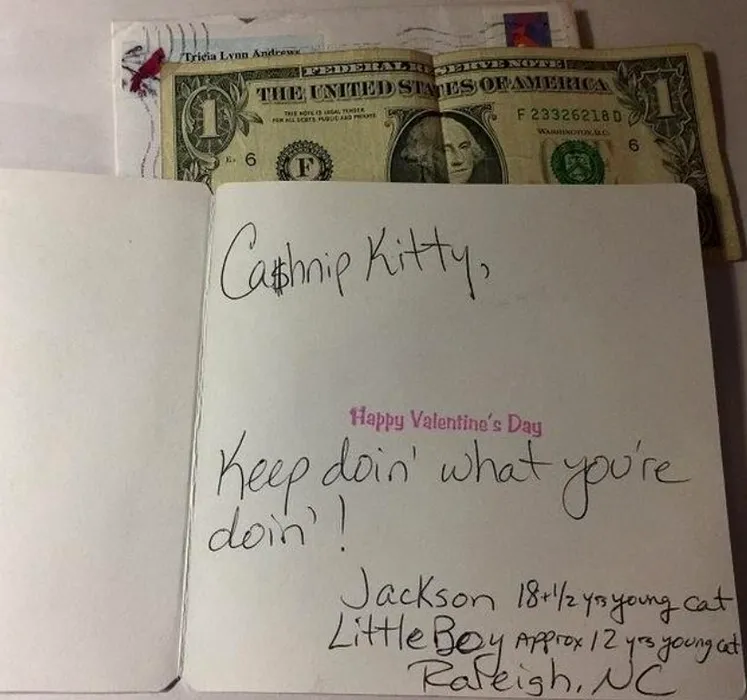 Tricia Lynn Andrews
FEDERAL RESERVE NOTE
THE UNITED STATES OF AMERICA
THIS NOTE IS LEGAL TENDER
FOR ALL DEBTS, PUBLIC AND PRIVATE
F 23326218 D
WASHINGTON, D.C.
1
1
6
F
6
Ca$hnip Kitty,
Happy Valentine's Day
Keep doin' what you're
doin'!
Jackson 18+1/2 yrs young cat
Little Boy Approx 12 yrs young cat
Raleigh, NC